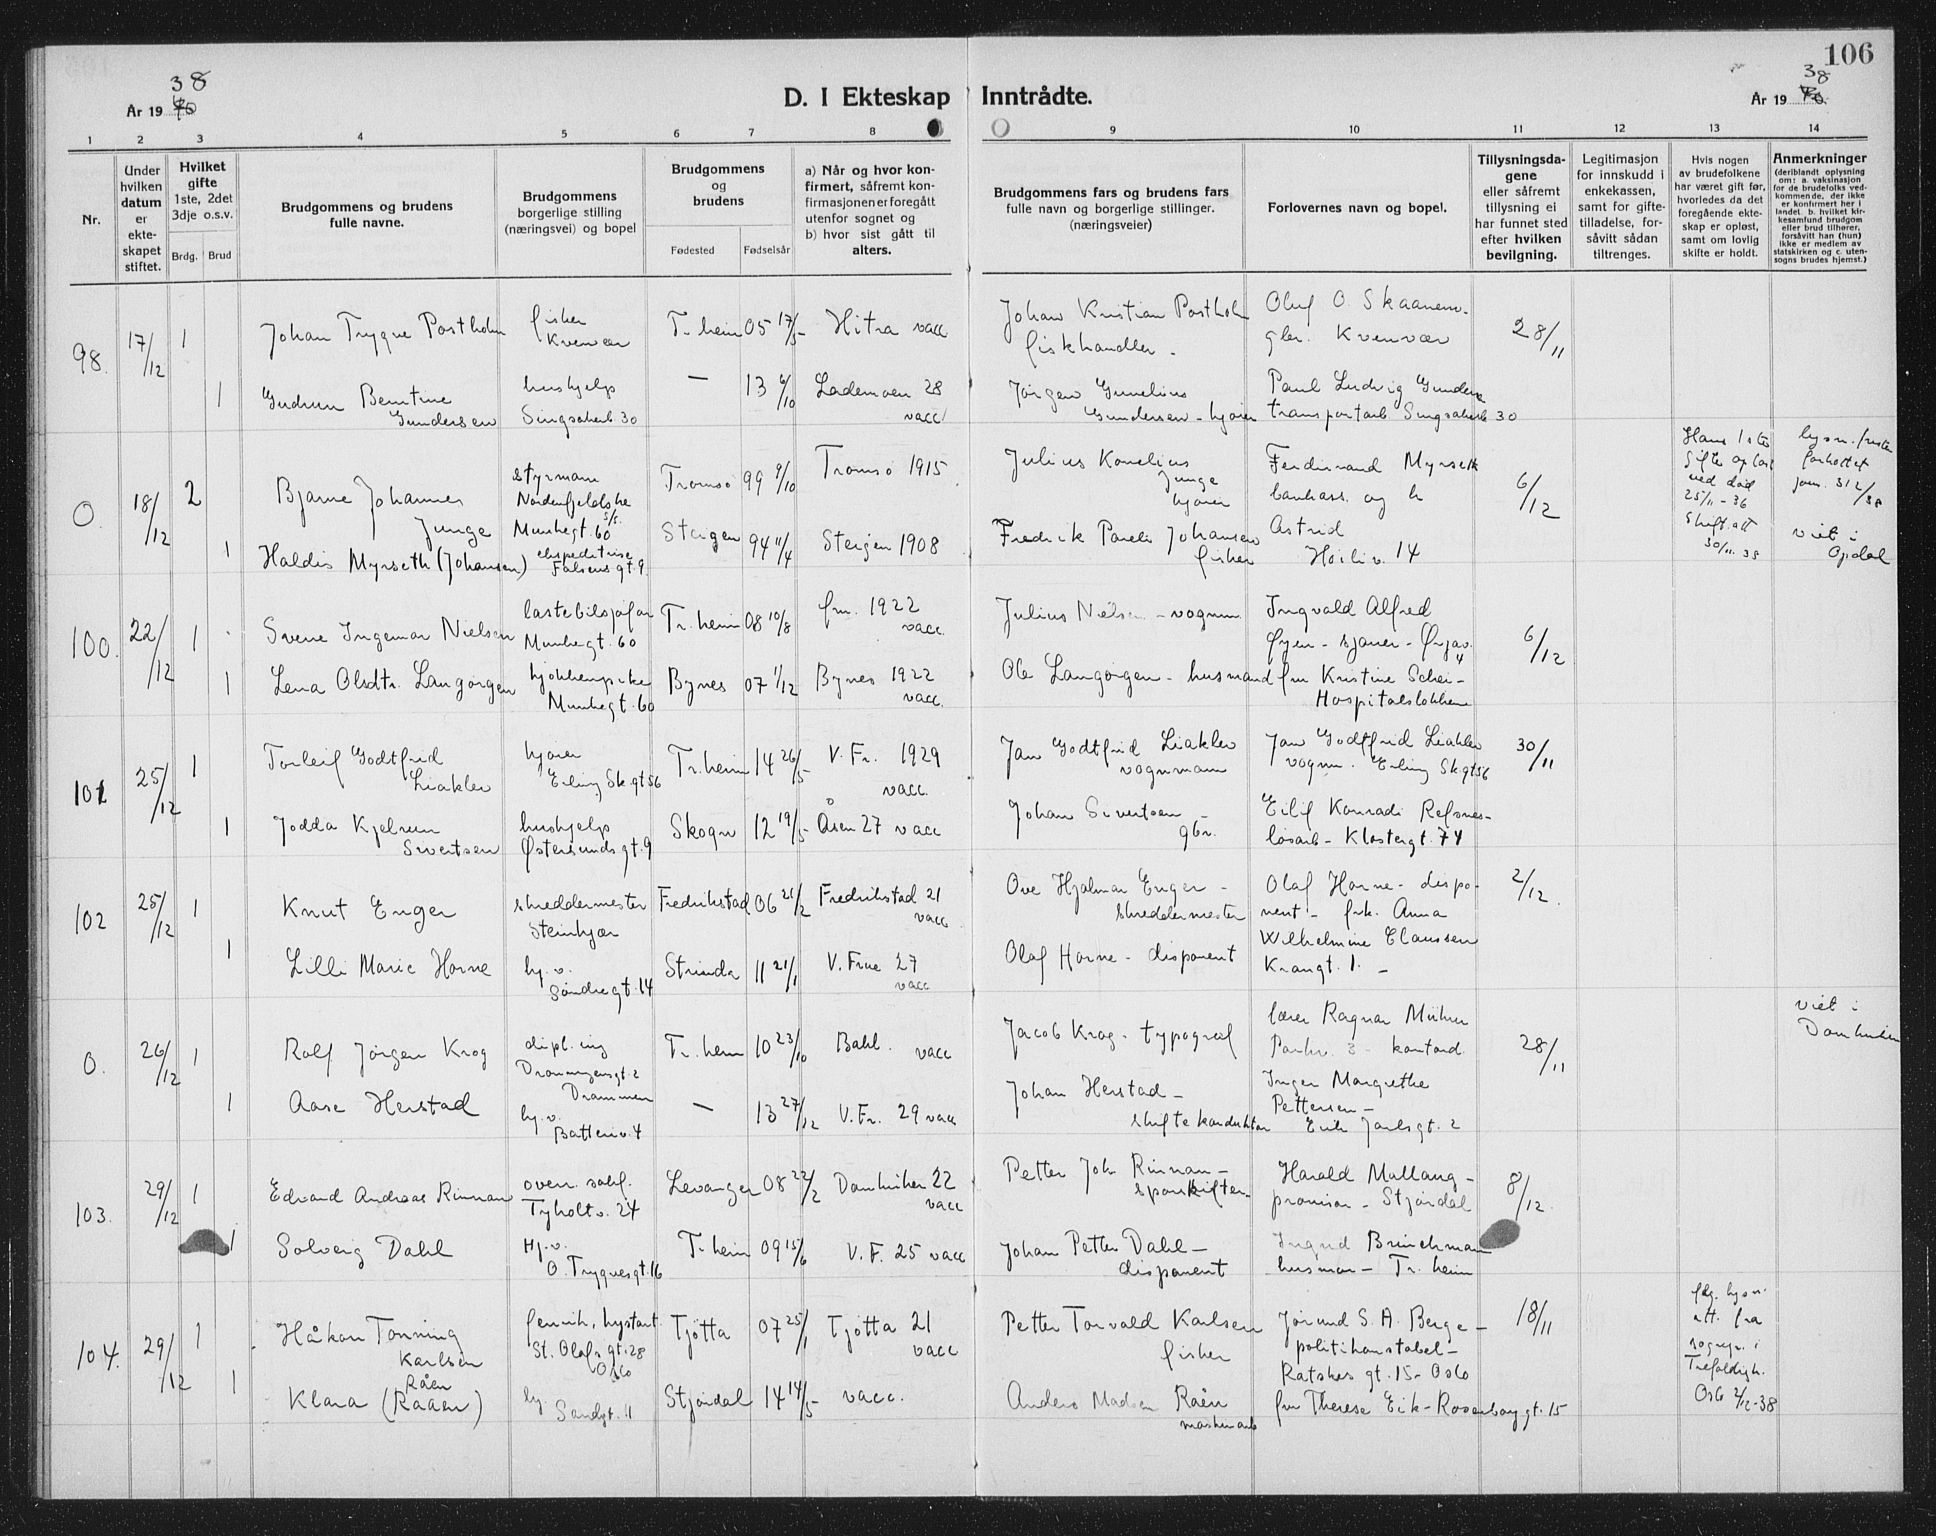 106
38
År 19 40
D. I Ekteskap Inntrådte.
38
År 19 40.
1 2 3 4 5 6 7 8 9 10 11 12 13 14
Nr.
Under hvilken datum er ekteskapet stiftet.
Hvilket gifte 1ste, 2det 3dje o.s.v.
Brdg. Brud
Brudgommens og brudens fulle navne.
Brudgommens borgerlige stilling (næringsvei) og bopel
Brudgommens og brudens
Fødested Fødselsår
a) Når og hvor konfirmert, såfremt konfirmasjonen er foregått utenfor sognet og b) hvor sist gått til alters.
Brudgommens fars og brudens fars fulle navn og borgerlige stillinger. (næringsveier)
Forlovernes navn og bopel.
Tillysningsdagene eller såfremt tillysning ei har funnet sted efter hvilken bevilgning.
Legitimasjon for innskudd i enkekassen, samt for giftetilladelse, forsåvitt sådan tiltrenges.
Hvis nogen av brudefolkene har været gift før, hvorledes da det foregående ekteskap er opløst, samt om lovlig skifte er holdt.
Anmerkninger (deriblandt oplysning om: a. vaksinasjon for de brudefolks vedkommende, der ikke er konfirmert her i landet. b. hvilket kirkesamfund brudgom eller brud tilhører, forsåvitt han (hun) ikke er medlem av statskirken og c. utensogns brudes hjemst.)
98. 17/12 1 Johan Trygve Postholm fisker Kvenvær Tr.heim 05 17/5 Hitra vacc Johan Kristian Postholm fiskhandler - Oluf O. gbr. Kvenvær 28/11
1 Gudrun Berntine Gundersen hushjelp Singsakerb 30 — 13 6/10 Lademoen 28 vacc Jørgen Gunelius Gundersen - kjører Paul Ludvig Gundersen transportarb. Singsakerb 30
0. 18/12 2 Bjarne Johannes Junge styrmann Nordenfjeldske s/s. Munkegt. 60 Tromsø 99 9/10 Tromsø 1915 Julius Konelius Junge kjører Ferdinand Myrseth bankass. og h 6/12 Hans 1ste gifte opløst ved død 25/11-36 Skift. att 30/11. 38 forkottet jorn. 312/38
1 Haldis Myrseth (Johansen) ekspeditrise Falsens gt. 9 Steigen 94 11/4 Steigen 1908 Fredrik Parelis Johansen fisker Astrid Høiliv. 14 viet i Opdal
100. 22/12 1 Svene Ingemar Nielsen lastebilsjåfør Munkegt. 60 Tr.heim 08 10/8 frn. 1922 vacc. Julius Nielsen - vognm Ingvald Alfred Øyen - sjauer - Øvjav. 4 6/12
1 Lena Olsdtr. Langørgen kjøkkenpike Munkegt. 60 Bynes 07 1/12 Bynes 1922 vacc. Ole Langørgen - husmand fru Kristine Schei - Hospitalsløkken
101 25/12 1 Torleif Godtfrid Liaklev kjører Erling Sk.gt 56 Tr.heim 14 26/5 V. Fr. 1929 vacc. Jan Godtfrid Liaklev vognmann Jan Godtfrid Liaklev vognm. Erling Sk.gt 56 30/11
1 Jodda Kjelrun Sivertsen hushjelp Østersunds gt. 9 Skogn 12 19/5 Åsen 27 vacc Johan Sivertsen - gbr. Eilif Konradi Refsnes - løsarb - Klostergt. 74
102 25/12 1 Knut Enger skreddermester Steinkjær Fredrikstad 06 21/2 Fredrikstad 21 vacc Ove Hjalmar Enger - skreddermester Olaf Horne - disponent - frk. Anna Wilhelmine Claussen Krangt. 1. - 2/12.
1 Lilli Marie Horne hj. v. Søndregt. 14 Strinda 11 21/1 V. Frue 27 vacc Olaf Horne - disponent
0. 26/12 1 Rolf Jørgen Krog dipl. ing Dronningensgt. 2 Drammen Tr. heim 10 23/10 Bakl. vacc Jacob Krog - typograf lærer Ragnar Parkv. 3 - kontord. Inger Margrethe Pettersen - Erik Jarlsgt. 2 28/11 viet i
1 Aase Herstad hj. v. Batteriv. 4 — 13 27/12 V. Fr. 29 vacc Johan Herstad - skiftekonduktør
103. 29/12 1 Edvard Andreas Rinnan overr. Tyholtv. 24 Levanger 08 22/2 22 vacc Petter Joh. Rinnan - sporskifter Harald Mallang - provisor - Stjørdal 8/12.
1 Solveig Dahl Hj.v. O. Trygvesgt. 16 Tr. heim 09 15/6 V. F. 25 vacc Johan Petter Dahl - disponent Ingrid Brinchmann husmor - Tr. heim
104. 29/12 1 Håkon Tonning Karlsen fenrik, St. Olafs gt. 28 Oslo Tjøtta 07 25/1 Tjøtta 21 vacc Petter Torvald Karlsen fisker Jørund S. A. Berge - politikonstabel - Ratshus gt. 15 - Oslo 18/11 flg. lysn. att. fra sognepr. i Trefoldigh. Oslo 2/12-38
1 Klara (Raaen) Råen hj Sandgt. 11 Stjørdal 14 14/5 vacc. Anders Madsen Råen maskinarb fru Therese Eik - Rosenborg gt. 15